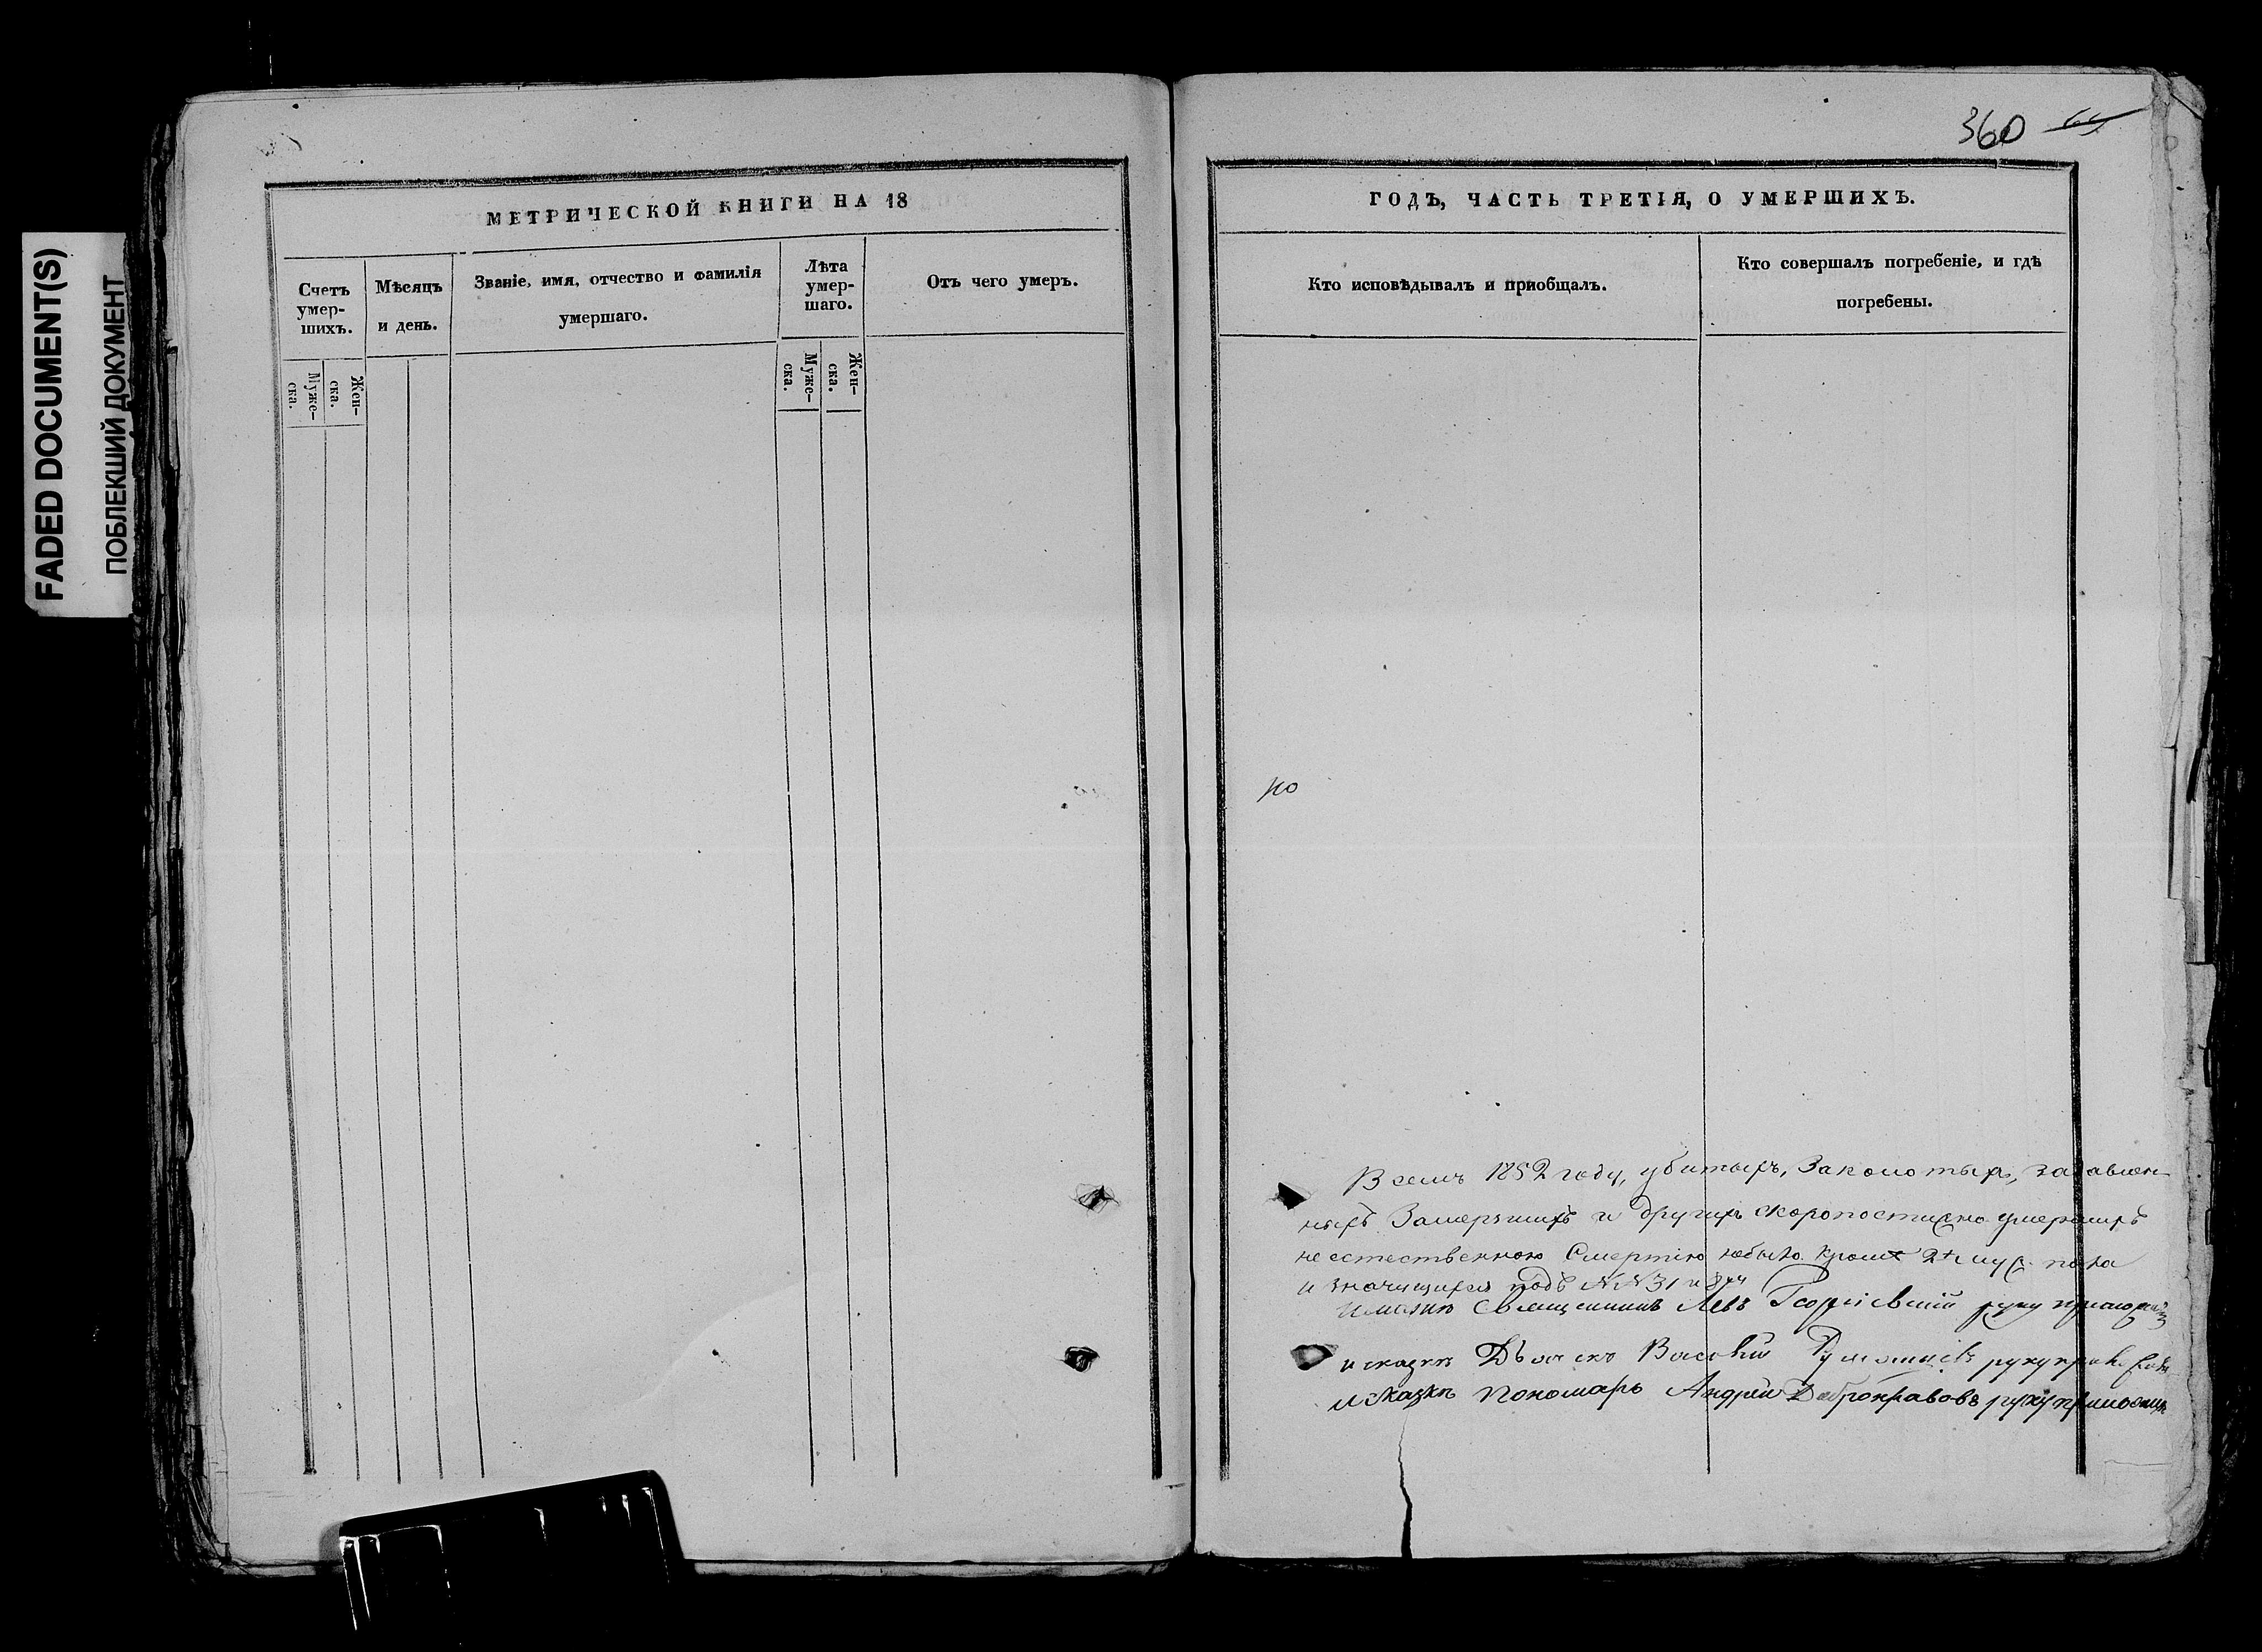 360 69
FADED DOCUMENT(S)
ПОБЛЕКШИЙ ДОКУМЕНТ
МЕТРИЧЕСКОЙ КНИГИ НА 18
Счетъ умер-шихъ.
Муже-ска.
Жен-ска.
Мѣсяцъ и день.
Званіе, имя, отчество и фамилія умершаго.
Лѣта умер-шаго.
Муже-ска.
Жен-ска.
Отъ чего умеръ.
ГОДЪ, ЧАСТЬ ТРЕТІЯ, О УМЕРШИХЪ.
Кто исповѣдывалъ и приобщалъ.
Кто совершалъ погребеніе, и гдѣ
погребены.
но
В семъ 1852 году, убитыхъ, Заколотыхъ, задавлен-
ныхъ Замерзшихъ и другихъ скоропостижно умершихъ
не естественною Смертію небыло кромѣ 2х муж. пола
и значущихся подъ №№ 31 и
Священникъ Левъ Георгіевскій руку приложилъ
Дьячекъ руку
Пономарь Андрей Добронравовъ руку приложилъ